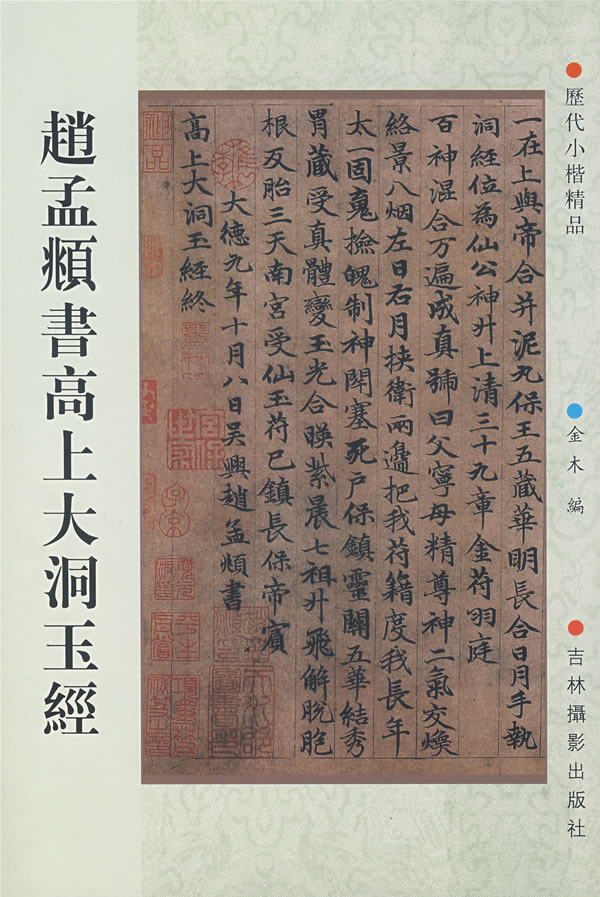 歷代小楷精品
金木編
吉林攝影出版社
一在上與帝合并泥丸保王五藏華明長合日月手執
洞經位為仙公神升上清三十九章金苻羽庭
百神混合万遍成真號曰父寧母精尊神二氣交煥
絡景八烟左日右月挾衛兩邊把我苻籍度我長年
太一固䰟撿魄制神閇塞死户保鎮靈關五華結秀
胃藏受真體變玉光合暎紫晨七祖升飛解脫胞
根反胎三天南宮受仙玉苻已鎮長保帝賓
大德九年十月八日吴興趙孟頫書
高上大洞玉經終
神品
子京
趙孟頫書高上大洞玉經